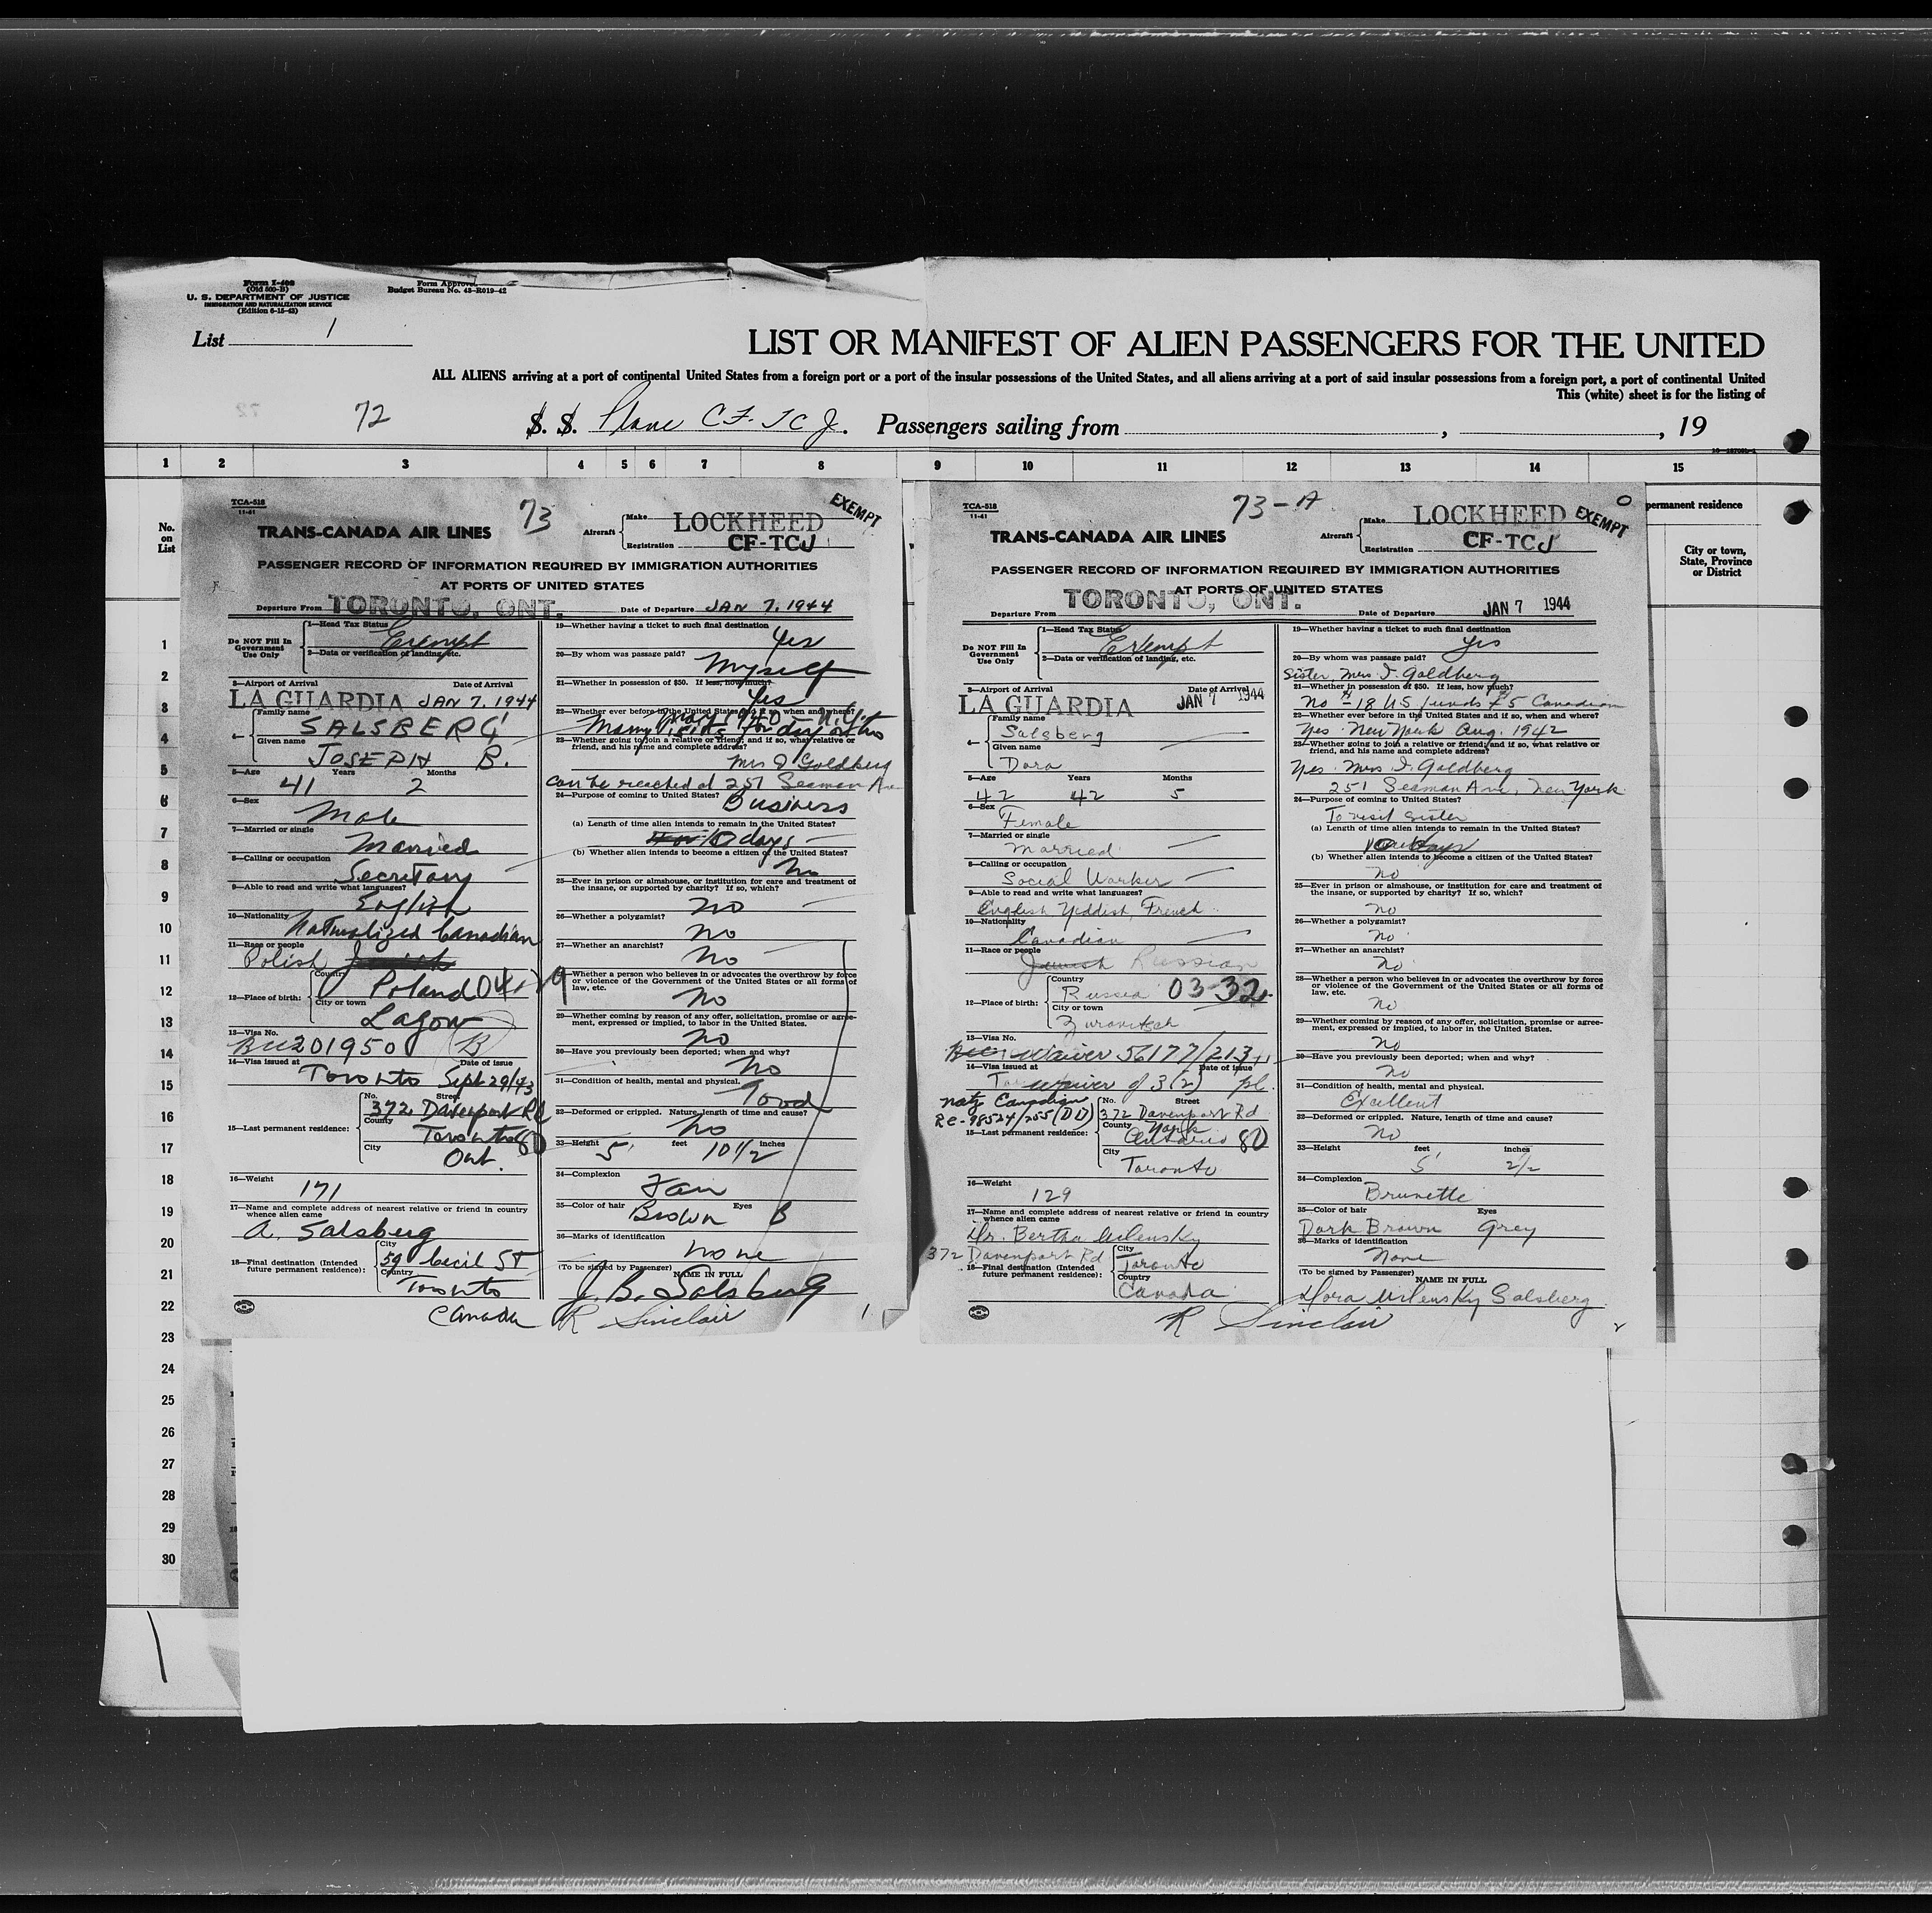 Form I-408
(Old 500-B)
U. S. DEPARTMENT OF JUSTICE
IMMIGRATION AND NATURALIZATION SERVICE
(Edition 6-15-43)
Form Approved
Budget Bureau No. 43-R019-42
List 1
LIST OR MANIFEST OF ALIEN PASSENGERS FOR THE UNITED
ALL ALIENS arriving at a port of continental United States from a foreign port or a port of the insular possessions of the United States, and all aliens arriving at a port of said insular possessions from a foreign port, a port of continental United
This (white) sheet is for the listing of
72 S. S. Plane CF-TCJ. Passengers sailing from , , 19
1 2 3 4 5 6 7 8 9 10 11 12 13 14 15
No. on List
permanent residence
City or town, State, Province or District
1
2
3
4
5
6
7
8
9
10
11
12
13
14
15
16
17
18
19
20
21
22
23
24
25
26
27
28
29
30
TCA-518
11-41
73
EXEMPT
TRANS-CANADA AIR LINES
Aircraft Make LOCKHEED
Registration CF-TCJ
PASSENGER RECORD OF INFORMATION REQUIRED BY IMMIGRATION AUTHORITIES
AT PORTS OF UNITED STATES
Departure From TORONTO, ONT. Date of Departure JAN 7, 1944
Do NOT Fill In Government Use Only
1—Head Tax Status Exempt
2—Data or verification of landing, etc.
3—Airport of Arrival Date of Arrival
LA GUARDIA JAN 7, 1944
4— Family name SALSBERG
Given name JOSEPH B.
5—Age Years Months
41 2
6—Sex Male
7—Married or single Married
8—Calling or occupation Secretary
9—Able to read and write what languages? English
10—Nationality Naturalized Canadian
11—Race or people Polish
12—Place of birth: Country Poland
City or town Lagow
13—Visa No.
201950 B
14—Visa issued at Date of issue
Toronto Sept 29/43
15—Last permanent residence: No. Street 372 Davenport Rd
County Toronto 80
City Ont.
16—Weight 171
17—Name and complete address of nearest relative or friend in country whence alien came
A. Salsberg
18—Final destination (Intended future permanent residence): City 59 Cecil St
Country Toronto
Canada
19—Whether having a ticket to such final destination Yes
20—By whom was passage paid? Myself
21—Whether in possession of $50. If less, how much? Yes
22—Whether ever before in the United States and if so, when and where?
1940 - N.Y.
Many visits for day or two
23—Whether going to join a relative or friend; and if so, what relative or friend, and his name and complete address?
Mrs I Goldberg
can be reached at 251 Seaman Ave
24—Purpose of coming to United States? Business
(a) Length of time alien intends to remain in the United States?
10 days
(b) Whether alien intends to become a citizen of the United States? No
25—Ever in prison or almshouse, or institution for care and treatment of the insane, or supported by charity? If so, which? No
26—Whether a polygamist? No
27—Whether an anarchist? No
28—Whether a person who believes in or advocates the overthrow by force or violence of the Government of the United States or all forms of law, etc. No
29—Whether coming by reason of any offer, solicitation, promise or agreement, expressed or implied, to labor in the United States. No
30—Have you previously been deported; when and why? No
31—Condition of health, mental and physical. Good
32—Deformed or crippled. Nature, length of time and cause? No
33—Height 5 feet 10 1/2 inches
34—Complexion Fair
35—Color of hair Brown Eyes B
36—Marks of identification none
(To be signed by Passenger) NAME IN FULL
J. B. Salsberg
R Sinclair 1
TCA-518
11-41
73-A
EXEMPT
TRANS-CANADA AIR LINES
Aircraft Make LOCKHEED
Registration CF-TCJ
PASSENGER RECORD OF INFORMATION REQUIRED BY IMMIGRATION AUTHORITIES
AT PORTS OF UNITED STATES
Departure From TORONTO, ONT. Date of Departure JAN 7 1944
Do NOT Fill In Government Use Only
1—Head Tax Status Exempt
2—Data or verification of landing, etc.
3—Airport of Arrival Date of Arrival
LA GUARDIA JAN 7 1944
4— Family name Salsberg
Given name Dora
5—Age Years Months
42 42 5
6—Sex Female
7—Married or single Married
8—Calling or occupation Social Worker
9—Able to read and write what languages?
English Yiddish, French
10—Nationality Canadian
11—Race or people Jewish Russian
12—Place of birth: Country Russia 03-32
City or town
13—Visa No.
Waiver 56177/213
14—Visa issued at Date of issue
waiver of 3(2)
natz Canadian
Re-98524/255 (DD)
15—Last permanent residence: No. Street 372 Davenport Rd
County York
Ontario 80
City Toronto
16—Weight 129
17—Name and complete address of nearest relative or friend in country whence alien came
Dr. Bertha Wilensky
372 Davenport Rd
18—Final destination (Intended future permanent residence): City Toronto
Country Canada
19—Whether having a ticket to such final destination Yes
20—By whom was passage paid?
Sister, Mrs. I. Goldberg
21—Whether in possession of $50. If less, how much?
No - $18 US funds $5 Canadian
22—Whether ever before in the United States and if so, when and where?
Yes. New York Aug. 1942
23—Whether going to join a relative or friend; and if so, what relative or friend, and his name and complete address?
Yes. Mrs I. Goldberg
251 Seaman Ave, New York
24—Purpose of coming to United States?
To visit sister
(a) Length of time alien intends to remain in the United States?
10 days
(b) Whether alien intends to become a citizen of the United States?
No
25—Ever in prison or almshouse, or institution for care and treatment of the insane, or supported by charity? If so, which?
No
26—Whether a polygamist?
No
27—Whether an anarchist?
No
28—Whether a person who believes in or advocates the overthrow by force or violence of the Government of the United States or all forms of law, etc.
No
29—Whether coming by reason of any offer, solicitation, promise or agreement, expressed or implied, to labor in the United States.
No
30—Have you previously been deported; when and why?
No
31—Condition of health, mental and physical.
Excellent
32—Deformed or crippled. Nature, length of time and cause?
No
33—Height 5' feet 2 1/2 inches
34—Complexion Brunette
35—Color of hair Eyes
Dark Brown Grey
36—Marks of identification None
(To be signed by Passenger) NAME IN FULL
Dora Wilensky Salsberg
R Sinclair 2